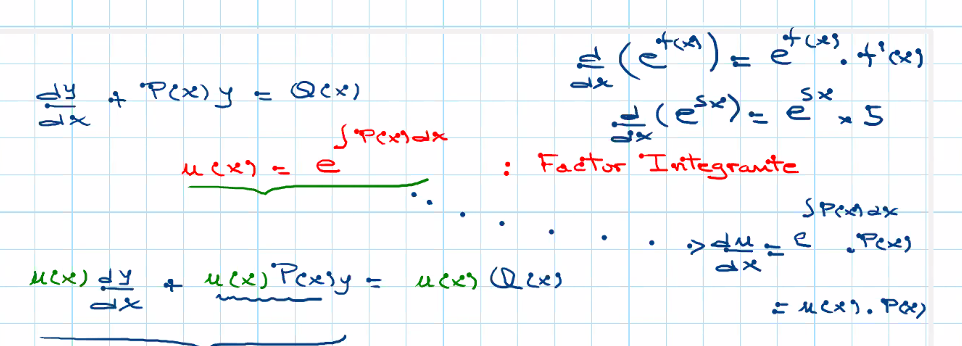 d/dx (e^{f(x)}) = e^{f(x)} . f'(x)
dy/dx + P(x) y = Q(x)
d/dx (e^{5x}) = e^{5x} × 5
u(x) = e^{∫P(x)dx} : Factor Integrante
du/dx = e^{∫P(x)dx} . P(x)
u(x) dy/dx + u(x) P(x) y = u(x) Q(x)
= u(x) . P(x)